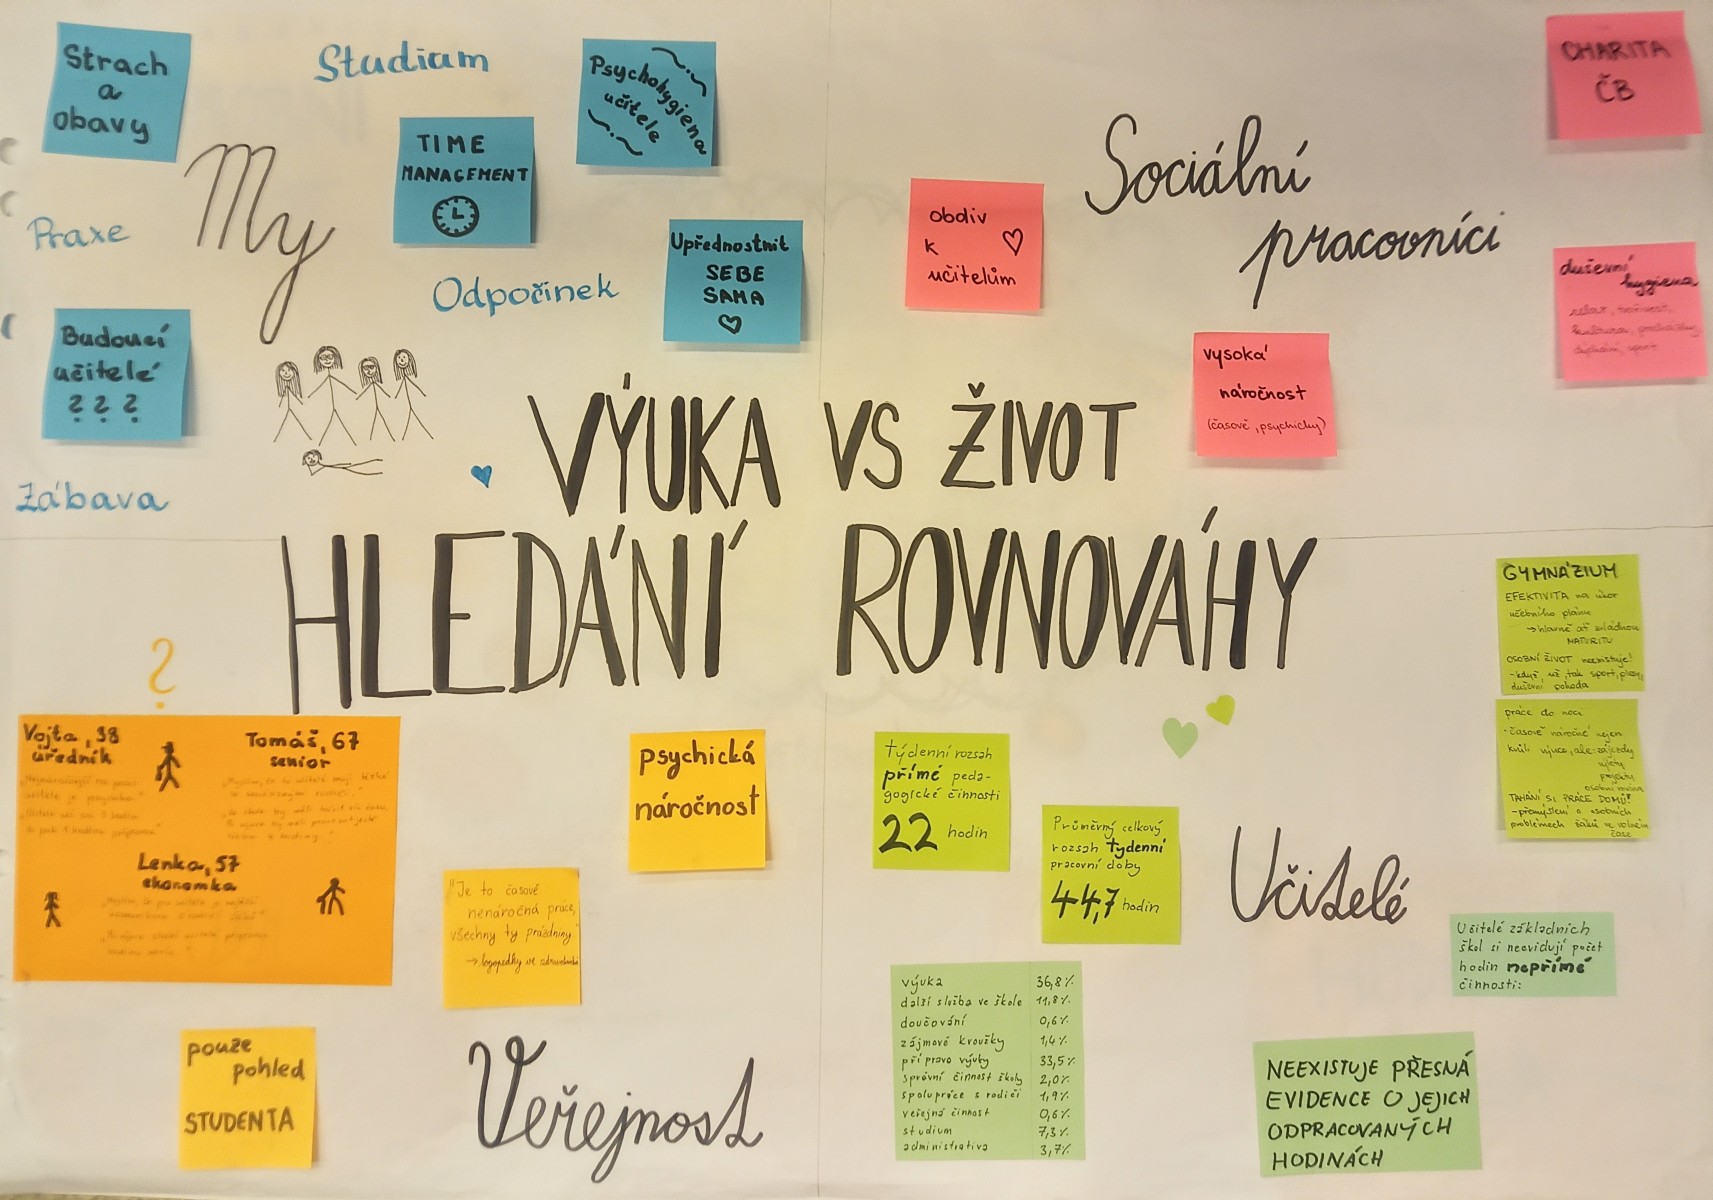 Strach
a
obavy
Studium
Psychohygiena
učitele
TIME
MANAGEMENT
My
Praxe
Upřednostnit
SEBE
SAMA
Odpočinek
Budoucí
učitelé
? ? ?
Zábava
Sociální
pracovníci
CHARITA
ČB
obdiv
k
učitelům
duševní
hygiena
relax,
kultura,
sport
vysoká
náročnost
(časově, psychicky)
VÝUKA VS ŽIVOT
HLEDÁNÍ ROVNOVÁHY
?
Vojta, 38
úředník
Tomáš, 67
senior
Lenka, 57
ekonomka
psychická
náročnost
"Je to časově
nenáročná práce,
všechny ty prázdniny"
→ logopedky ve
pouze
pohled
STUDENTA
Veřejnost
týdenní rozsah
přímé peda-
gogické činnosti
22 hodin
Průměrný celkový
rozsah týdenní
pracovní doby
44,7 hodin
Učitelé
GYMNÁZIUM
EFEKTIVITA na úkor
učebního plánu
→ hlavně ať zvládnou
MATURITU
OSOBNÍ ŽIVOT neexistuje!
- když už, tak sport, plesy,
duševní pohoda
práce do noci
- časově náročné nejen
kvůli výuce, ale: zájezdy
výlety
projekty
osobní
TAHÁNÍ SI PRÁCE DOMŮ!
- přemýšlení o osobních
problémech žáků ve volném
čase
Učitelé základních
škol si neevidují počet
hodin nepřímé
činnosti:
NEEXISTUJE PŘESNÁ
EVIDENCE O JEJICH
ODPRACOVANÝCH
HODINÁCH
výuka 36,8%
další služba ve škole 11,8%
doučování 0,6%
zájmové kroužky 1,4%
příprava výuky 33,5%
správní činnost školy 2,0%
spolupráce s rodiči 1,9%
veřejná činnost 0,6%
studium 7,3%
administrativa 3,7%